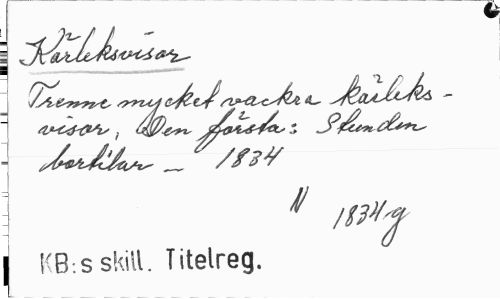 Kärleksvisor
Trenne mycket vackra kärleks-
visor, Den första: Stunden
bortilar — 1834
N 1834 g
KB:s skill. Titelreg.